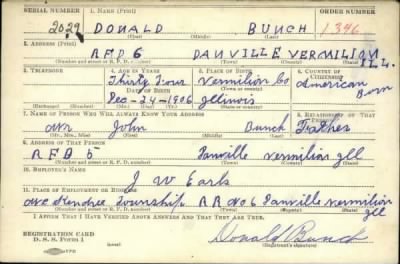 SERIAL NUMBER 1. NAME (Print) ORDER NUMBER
2029 DONALD BUNCH 1346
(First) (Middle) (Last)
2. ADDRESS (Print)
RFD 6 DANVILLE VERMILION ILL.
(Number and street or R. F. D. number) (Town) (County) (State)
3. TELEPHONE 4. AGE IN YEARS 5. PLACE OF BIRTH 6. COUNTRY OF CITIZENSHIP
Thirty Four Vermilion Co American
DATE OF BIRTH (Town or county)
Dec-24-1906 Illinois Born
(Exchange) (Number) (Mo.) (Day) (Yr.) (State or country)
7. NAME OF PERSON WHO WILL ALWAYS KNOW YOUR ADDRESS 8. RELATIONSHIP OF THAT PERSON
John Bunch Father
(Mr., Mrs., Miss) (First) (Middle) (Last)
9. ADDRESS OF THAT PERSON
R F D 5 Danville Vermilion Ill
(Number and street or R. F. D. number) (Town) (County) (State)
10. EMPLOYER'S NAME
J W Earls
11. PLACE OF EMPLOYMENT OR BUSINESS
Township R R No 6 Danville Vermilion Ill
(Number and street or R. F. D. number) (Town) (County) (State)
I AFFIRM THAT I HAVE VERIFIED ABOVE ANSWERS AND THAT THEY ARE TRUE.
REGISTRATION CARD
D. S. S. Form 1
Donald Bunch
(Registrant's signature)